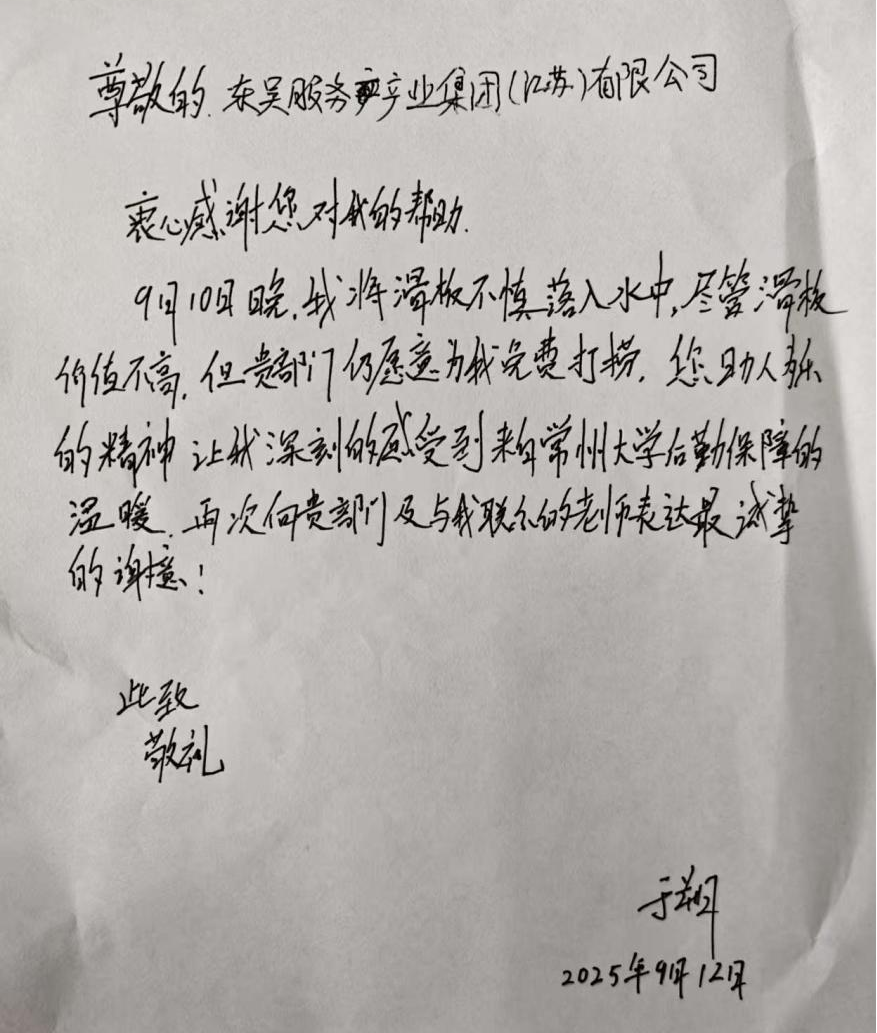 尊敬的.东吴服务产业集团(江苏)有限公司
衷心感谢您对我的帮助.
9月10日晚,我将滑板不慎落入水中,尽管滑板
价值不高,但贵部门仍愿意为我免费打捞,您助人为乐
的精神让我深刻的感受到来自常州大学后勤保障的
温暖.再次向贵部门及与我联系的老师表达最诚挚
的谢意!
此致
敬礼
于翔
2025年9月12日